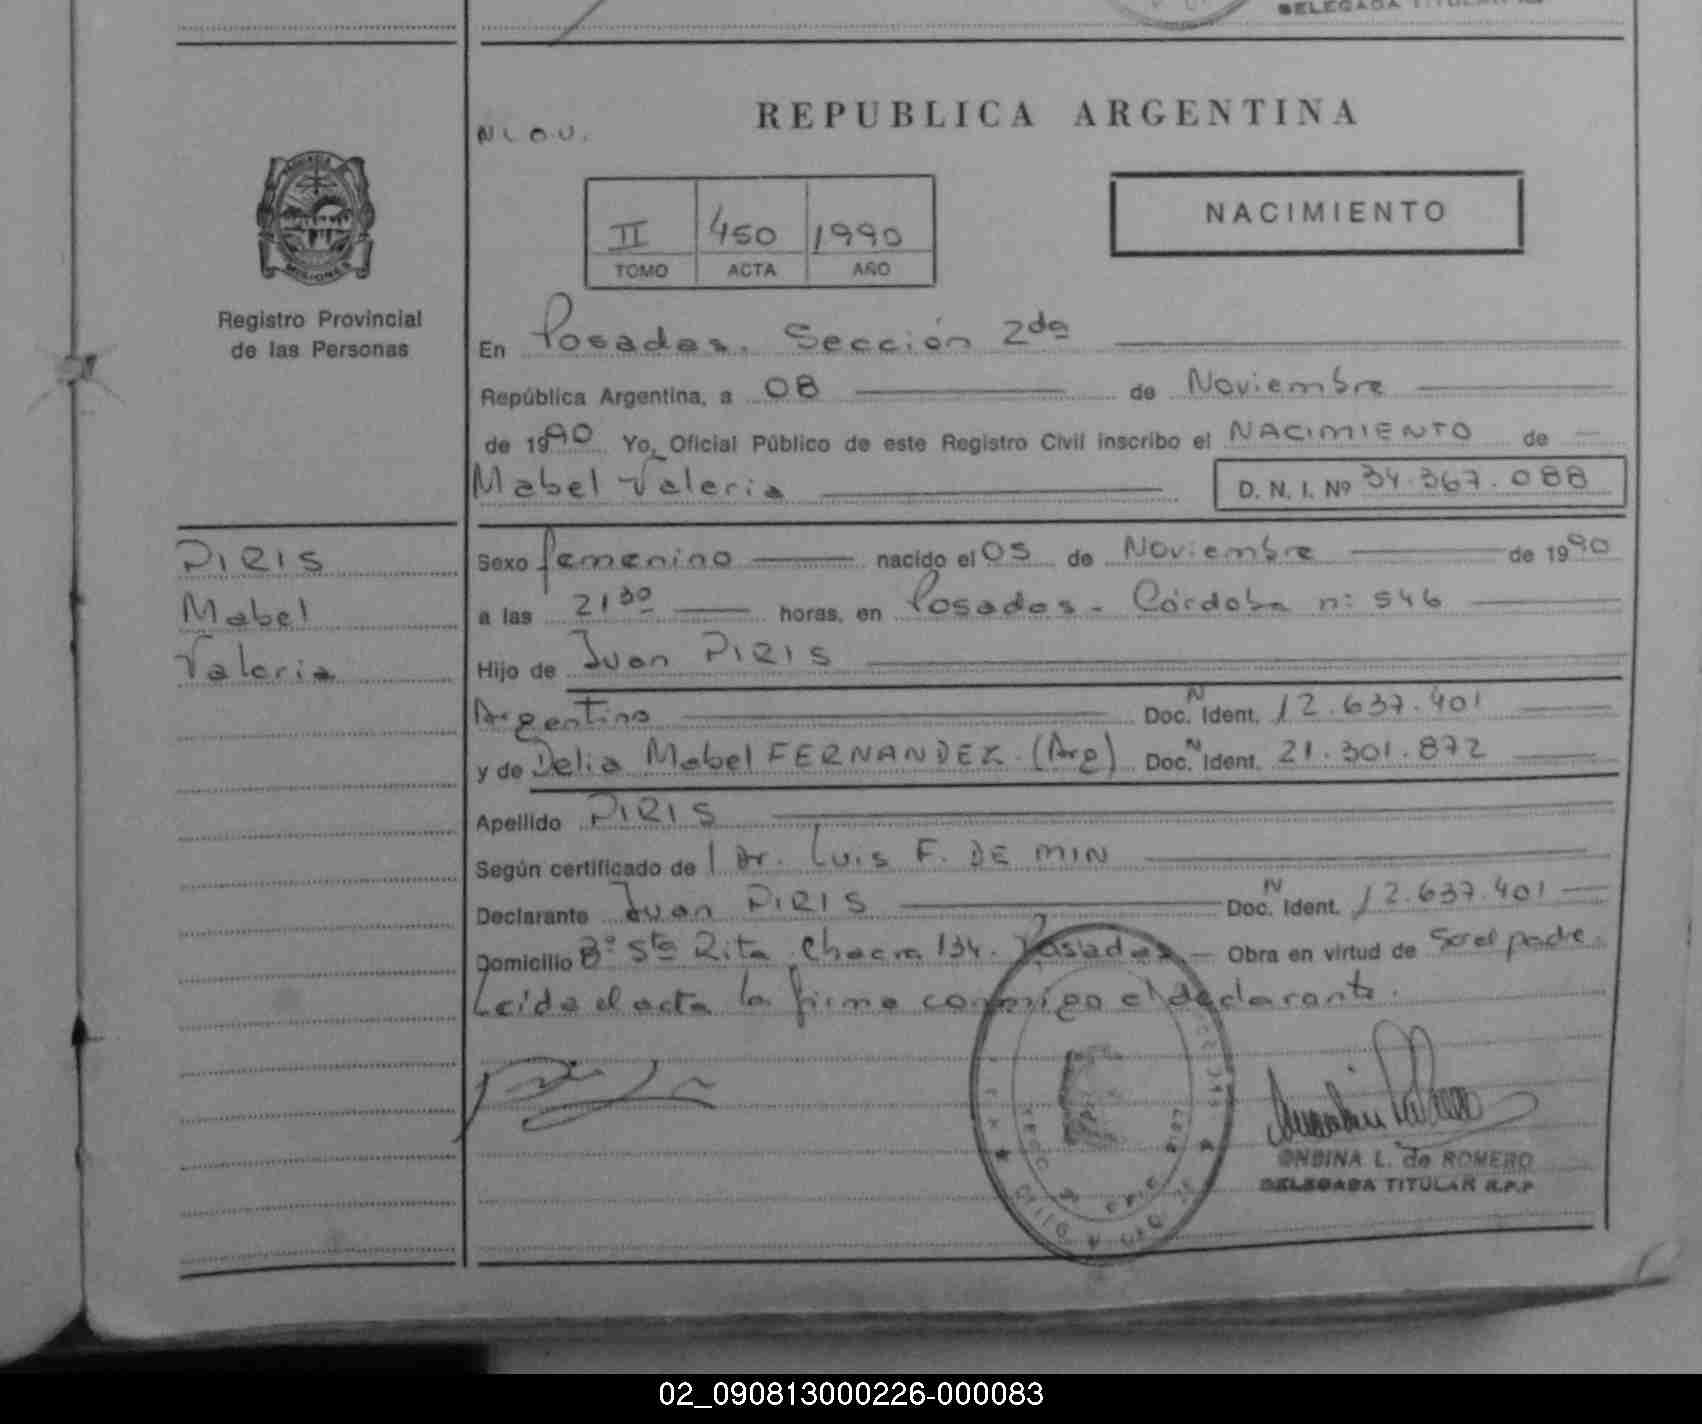 DELEGADA TITULAR R.P.P
REPUBLICA ARGENTINA
N.L.O.U.
NACIMIENTO
II 450 1990
TOMO ACTA AÑO
PROVINCIA
MISIONES
Registro Provincial
de las Personas
En Posadas. Sección 2da
República Argentina, a 08 de Noviembre
de 1990 Yo, Oficial Público de este Registro Civil inscribo el NACIMIENTO de
Mabel Valeria D. N. I. Nº 34.367.088
PIRIS
Mabel
Valeria
Sexo femenino nacido el 05 de Noviembre de 1990
a las 21 30 horas, en Posadas - Córdoba nº 546
Hijo de Juan PIRIS
Argentino Doc. N Ident. 12.637.401
y de Delia Mabel FERNANDEZ. (Arg) Doc. N Ident. 21.301.872
Apellido PIRIS
Según certificado de l Dr. Luis F. DE MIN
Declarante Juan PIRIS Doc. N Ident. 12.637.401
Domicilio Bº Sta Rita Chacra 134. Posadas Obra en virtud de Ser el padre.
Leida el acta la firma conmigo el declarante.
ONDINA L. de ROMERO
DELEGADA TITULAR R.P.P
02_090813000226-000083